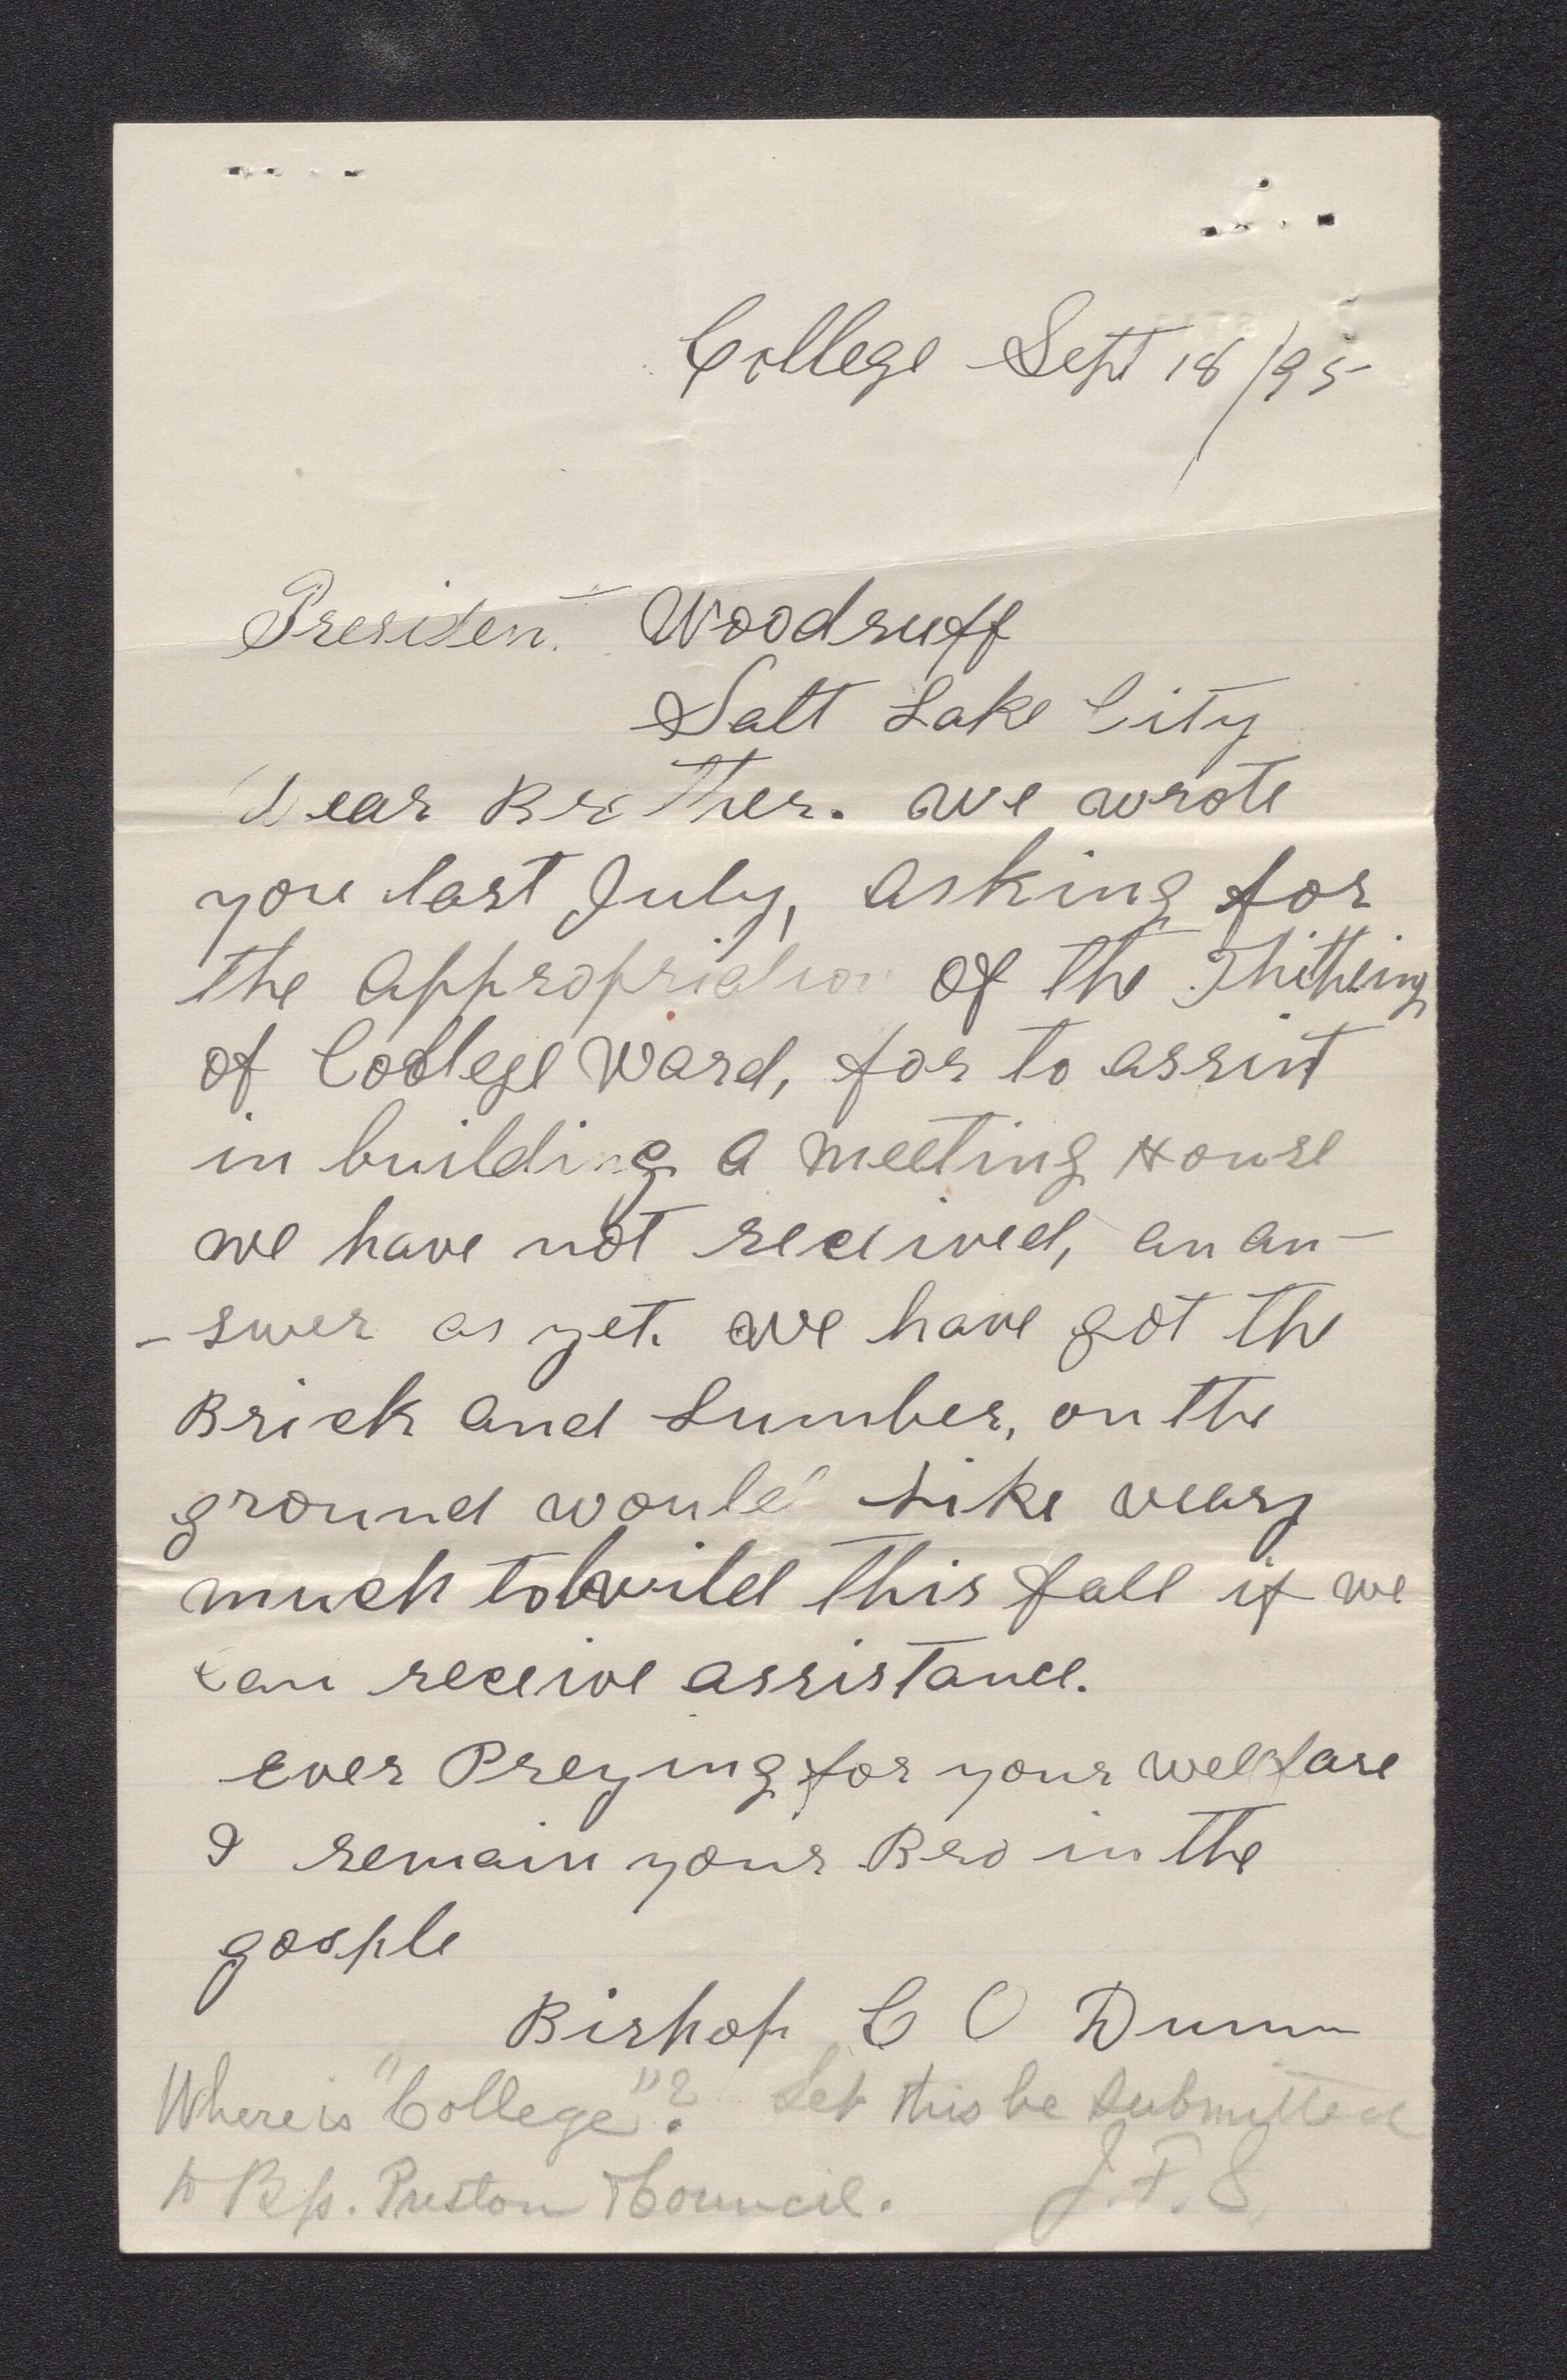 College Sept 18/95
President Woodruff
Salt Lake City
Dear Brother. we wrote
you last July, asking for
the appropriation of the Thitheing
of Coolege Ward, for to assist
in building a meeting House
we have not received, an an-
-swer as yet. we have got the
Brick and Lumber, on the
ground would Like veary
much to build this fall if we
can receive assistance.
ever Preying for your welfare
I remain your Bro in the
gosple
Bishop C O Dunn
Where is "College"? Let this be submitted
to Bp. Preston & Council. J. F. S.